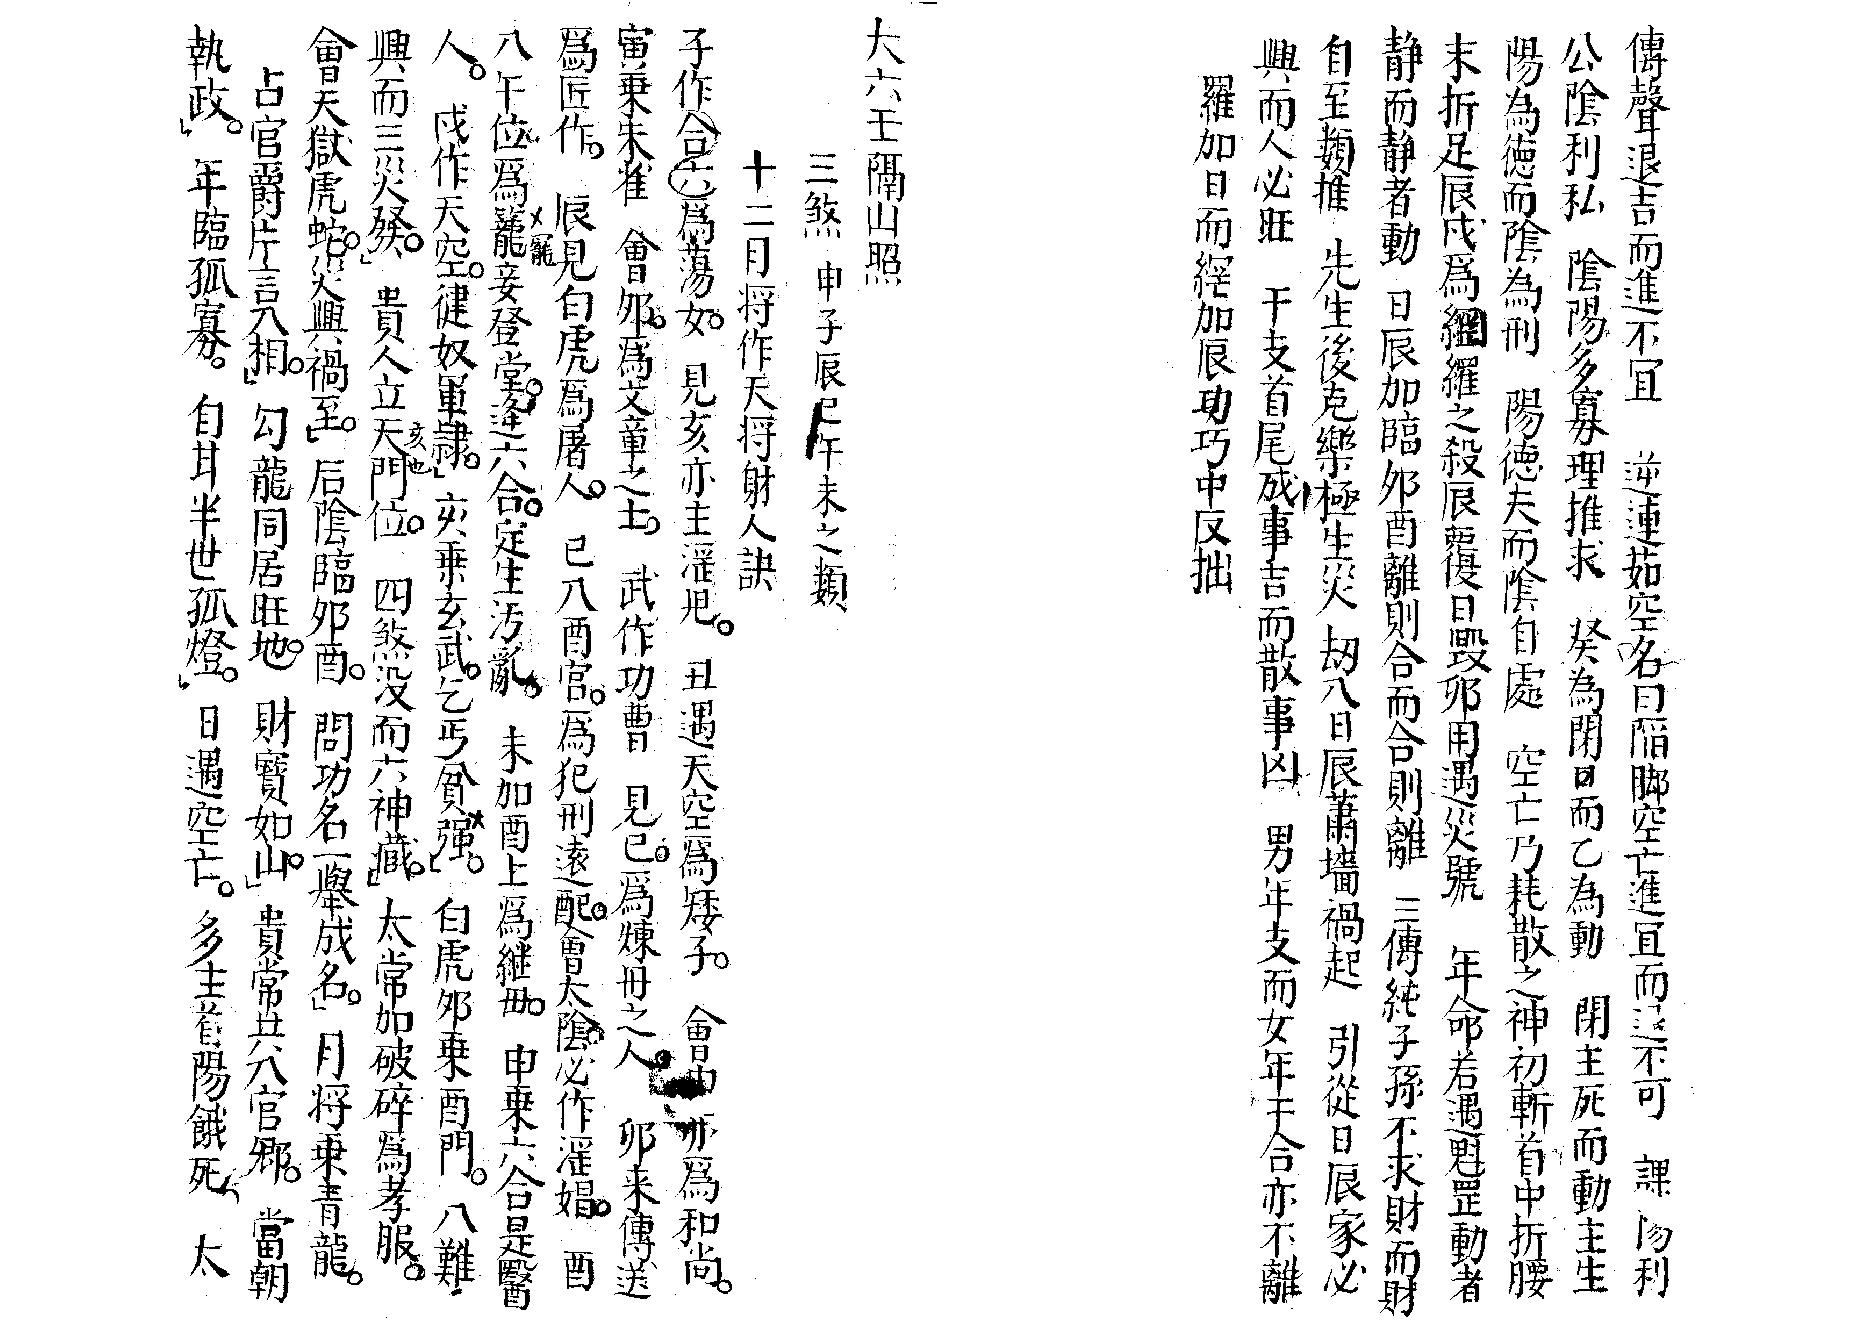 傳聲退吉而進不冝　逆連茹空名曰陷脚空亡進冝而退不可　課陽利
公陰利私　陰陽多寡理推求　癸為閉日而乙為動　閉主死而動主生
陽為德而陰為刑　陽德夫而陰自處　空亡乃耗散之神初斬首中折腰
末折足辰戌爲網羅之殺辰覆日毀卯用遇災號　年命若遇魁罡動者
静而静者動　日辰加臨卯酉離則合而合則離　三傳純子孫不求財而財
自至類推　先生後克樂極生災　劫入日辰蕭墻禍起　引從日辰家必
興而人必旺　干支首尾成事吉而散事凶　男年支而女年干合亦不離
羅加日而繂加辰功巧中反拙
大六壬隔山照
三煞　申子辰巳午未之類
十二月将作天将射人訣
子作合六爲蕩女。見亥亦主淫児。丑遇天空爲矮子。會申亦爲和尚。
寅乗朱雀　會卯。爲文童之士。武作功曹　見巳。爲煉丹之人。卯来傳送
爲匠作。辰見白虎爲屠人。巳入酉宫。爲犯刑遠配。會太陰。必作淫娼。酉
入午位爲寵妾登堂。逢六合。定生汚亂。未加酉上爲継毋。申乗六合是醫
人。戌作天空。健奴軍隷。亥乗玄武。乞丐貧强。白虎卯乗酉門。八難
興而三災發。貴人立天門位。四煞没而六神藏。太常加破碎爲孝服。
亥也
會天獄虎蛇。災興禍至。后陰臨卯酉。問功名一舉成名。月将乗青龍。
占官爵片言入相。勾龍同居旺地。財寳如山。貴常共入官鄉。當朝
執政。年臨孤寡。自甘半世孤燈。日遇空亡。多主首陽餓死　太